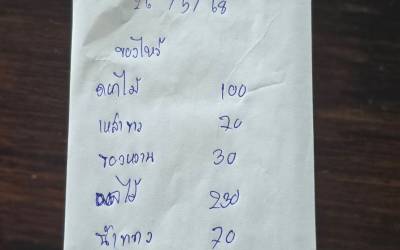 26 / 5 / 68
ของไหว้
ดอกไม้ 100
เหล้าขาว 70
ของหวาน 30
ผลไม้ 230
น้ำแดง 70